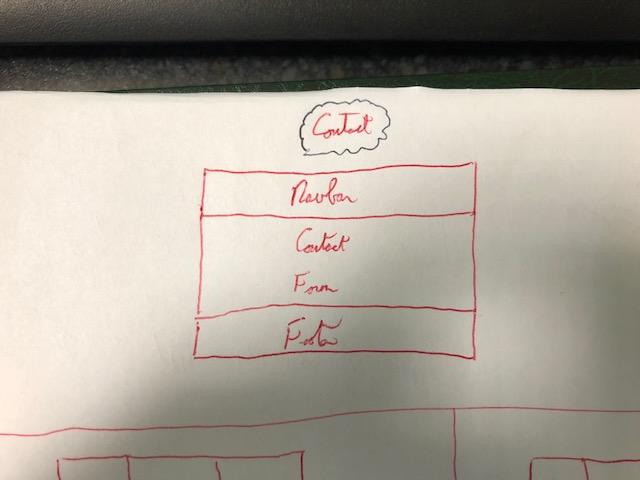 Contact
Navbar
Contact
Form
Footer